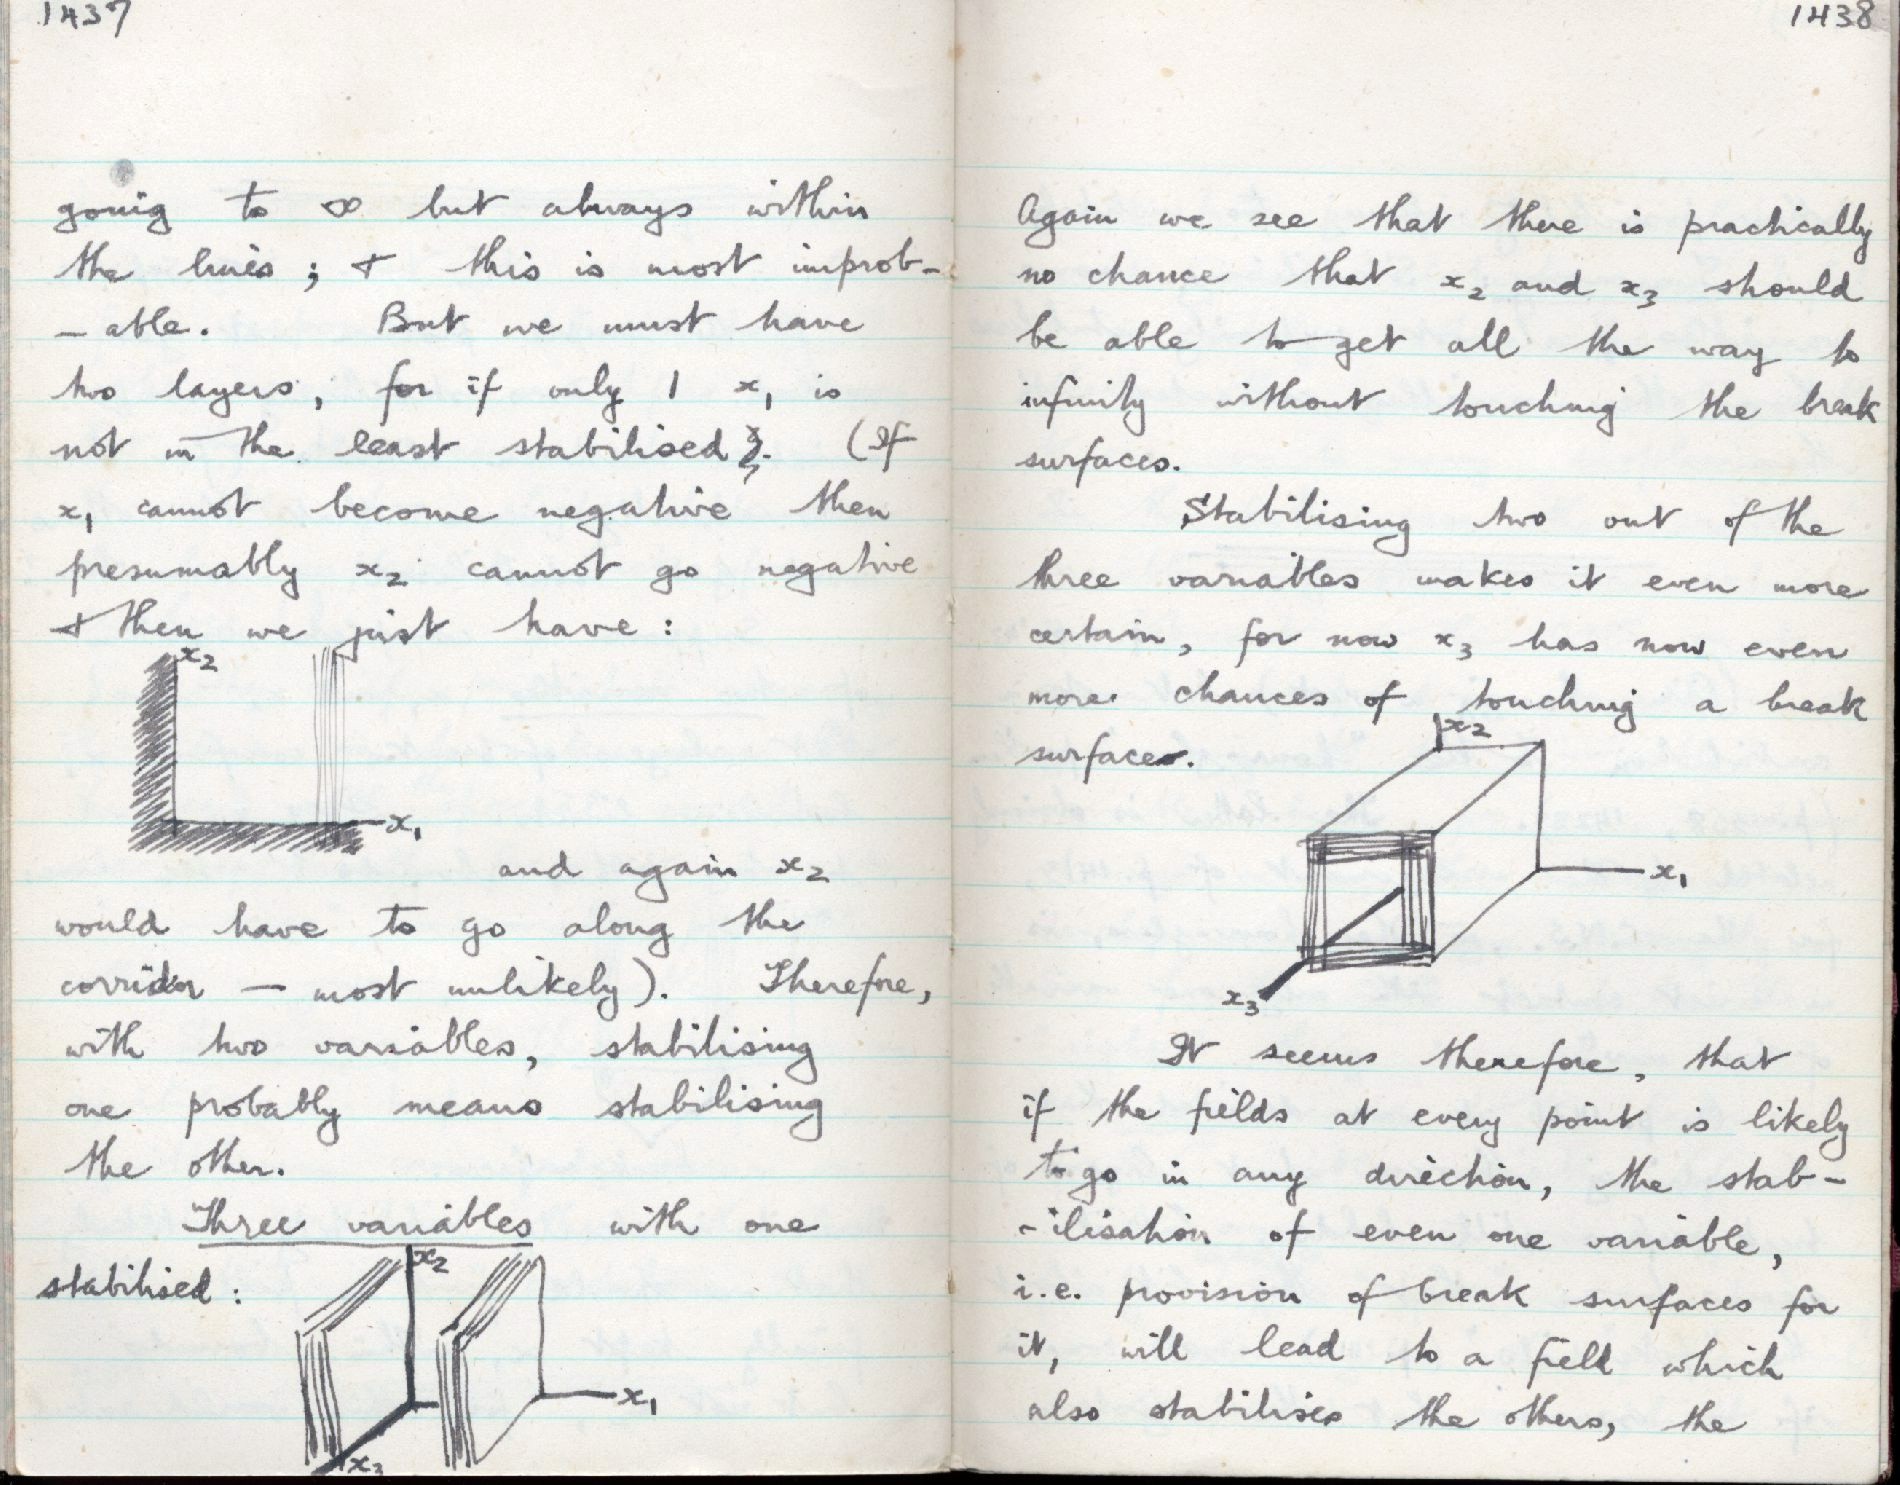 1437
going to ∞ but always within
the lines; & this is most improb-
-able. But we must have
two layers, for if only 1 x₁ is
not in the least stabilised. (If
x₁ cannot become negative then
presumably x₂ cannot go negative
& then we just have:
x₂
x₁
and again x₂
would have to go along the
corridor — most unlikely). Therefore,
with two variables, stabilising
one probably means stabilising
the other.
Three variables with one
stabilised:
x₂
x₁
x₃
1438
Again we see that there is practically
no chance that x₂ and x₃ should
be able to get all the way to
infinity without touching the break
surfaces.
Stabilising two out of the
three variables makes it even more
certain, for now x₃ has now even
more chances of touching a break
surface.
x₂
x₁
x₃
It seems therefore, that
if the fields at every point is likely
to go in any direction, the stab-
-ilisation of even one variable,
i.e. provision of break surfaces for
it, will lead to a field which
also stabilises the others, the